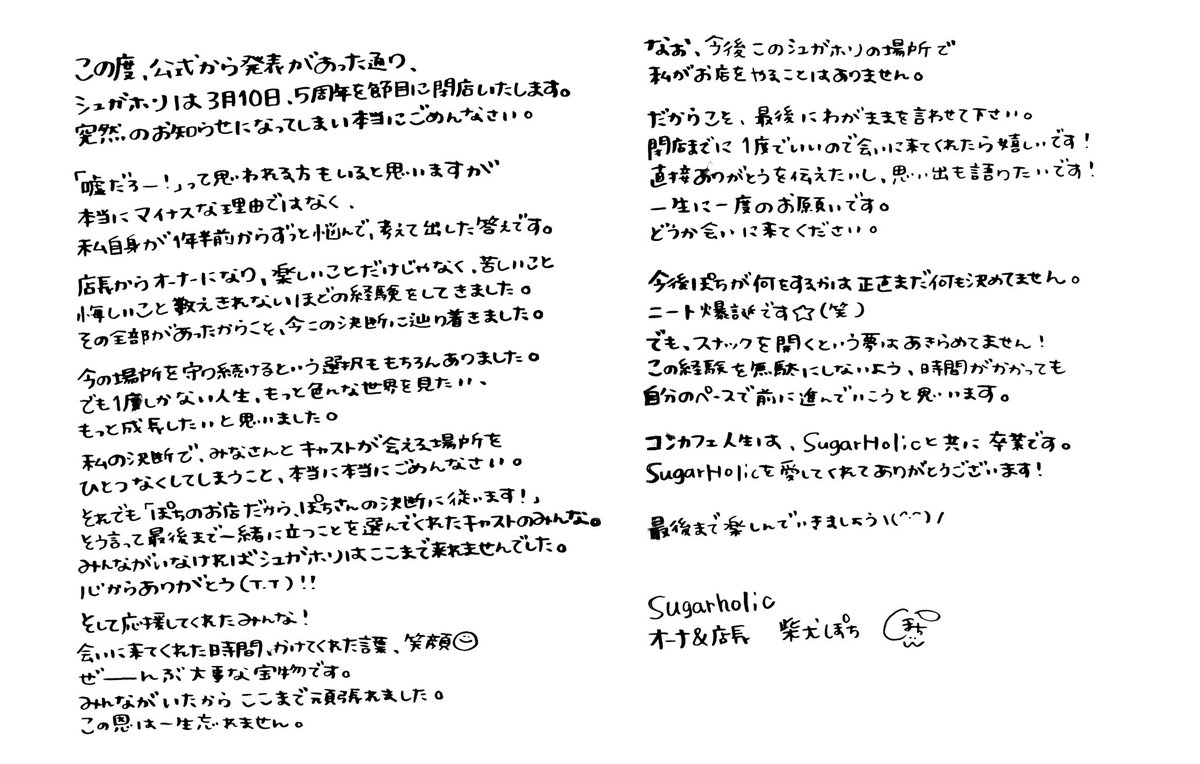 この度、公式から発表があった通り、
シュガホリは3月10日、5周年を節目に閉店いたします。
突然のお知らせになってしまい本当にごめんなさい。
「嘘だろー!」って思われる方もいると思いますが
本当にマイナスな理由ではなく、
私自身が1年半前からずっと悩んで、考えて出した答えです。
店長からオーナーになり、楽しいことだけじゃなく、苦しいこと
悔しいこと数えきれないほどの経験をしてきました。
その全部があったからこそ、今この決断に辿り着きました。
今の場所を守り続けるという選択ももちろんありました。
でも1度しかない人生、もっと色んな世界を見たい、
もっと成長したいと思いました。
私の決断で、みなさんとキャストが会える場所を
ひとつなくしてしまうこと、本当に本当にごめんなさい。
それでも「ぽちのお店だから、ぽちさんの決断に従います!」
そう言って最後まで一緒に立つことを選んでくれたキャストのみんな。
みんながいなければシュガホリはここまで来れませんでした。
心からありがとう(T.T)!!
そして応援してくれたみんな!
会いに来てくれた時間、かけてくれた言葉、笑顔☺
ぜーーんぶ大事な宝物です。
みんながいたからここまで頑張れました。
この恩は一生忘れません。
なお、今後このシュガホリの場所で
私がお店をやることはありません。
だからこそ、最後にわがままを言わせて下さい。
閉店までに1度でいいので会いに来てくれたら嬉しいです!
直接ありがとうを伝えたいし、思い出も語りたいです!
一生に一度のお願いです。
どうか会いに来てください。
今後ぽちが何をするかは正直まだ何も決めてません。
ニート爆誕です☆(笑)
でも、スナックを開くという夢はあきらめてません!
この経験を無駄にしないよう、時間がかかっても
自分のペースで前に進んでいこうと思います。
コンカフェ人生は、SugarHolicと共に卒業です。
SugarHolicを愛してくれてありがとうございます!
最後まで楽しんでいきましょう\(^-^)/
Sugarholic
オーナ&店長 柴犬ぽち ぽち